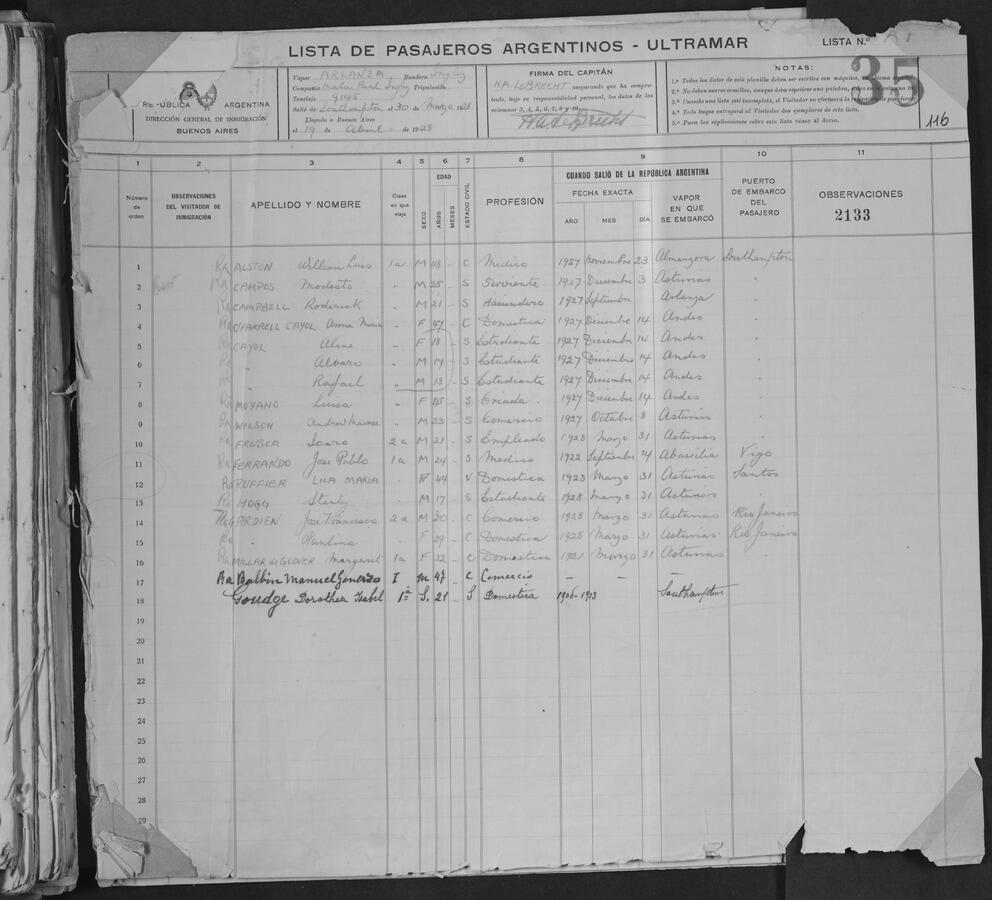 LISTA DE PASAJEROS ARGENTINOS - ULTRAMAR
LISTA N.º A 1
35
116
REPUBLICA ARGENTINA
DIRECCIÓN GENERAL DE INMIGRACIÓN
BUENOS AIRES
Vapor ARLANZA Bandera Ingles
Compañia Mala Real Inglesa Tripulación
Tonelaje 9145
Salió de Southampton el 30 de Marzo 1928
Llegado a Buenos Aires
el 19 de Abril de 1928
FIRMA DEL CAPITÁN
HA. LEBRECHT asegurando que ha comprobado, bajo su responsabilidad personal, los datos de las
columnas 3, 4, 5, 6, 7, 8 y 10
NOTAS:
1.º Todos los datos de esta planilla deben ser escritos con máquina,
2.º No deben usarse comillas, aunque deba repetirse una palabra,
3.º Cuando una lista esté incompleta, el Visitador no efectuará la recepción de pasajeros.
4.º Todo buque entregará al Visitador dos ejemplares de esta lista.
5.º Para las explicaciones sobre esta lista véase al dorso.
1 2 3 4 5 6 7 8 9 10 11
Número de orden
OBSERVACIONES DEL VISITADOR DE INMIGRACIÓN
APELLIDO Y NOMBRE
Clase en que viaja
SEXO
EDAD
AÑOS
MESES
ESTADO CIVIL
PROFESIÓN
CUANDO SALIÓ DE LA REPÚBLICA ARGENTINA
FECHA EXACTA
AÑO MES DÍA
VAPOR EN QUE SE EMBARCÓ
PUERTO DE EMBARCO DEL PASAJERO
OBSERVACIONES
2133
1 Ra ALSTON William Luis 1a M 48 - C Medico 1927 Noviembre 23 Almanzora Southampton
2 Ra CAMPOS Modesto " M 25 - S Sirviente 1927 Diciembre 3 Asturias "
3 Ra CAMPBELL Roderick " M 21 - S Hacendero 1927 Septiembre Arlanza "
4 Ra O'FARRELL CAYOL Anna Maria " F 47 - C Domestica 1927 Diciembre 14 Andes "
5 Ra CAYOL Aline " F 18 - S Estudiante 1927 Diciembre 14 Andes "
6 Ra " Alvaro " M 14 - S Estudiante 1927 Diciembre 14 Andes "
7 Ra " Rafael " M 13 - S Estudiante 1927 Diciembre 14 Andes "
8 Ra MOYANO Luisa " F 45 - S Criada 1927 Diciembre 14 Andes "
9 Ra WILSON Andrew " M 23 - S Comercio 1927 Octubre 8 Asturias "
10 Ra FRUSCA 2a M 21 - S Empleado 1928 Marzo 31 Asturias "
11 Ra FERRANDO Jose Pablo 1a M 24 - S Medico 1922 Septiembre 14 Vigo
12 Ra RUFFIER LILA MARIA " F 44 - V Domestica 1928 Marzo 31 Asturias Santos
13 Ra HOGG Stanley " M 17 - S Estudiante 1928 Marzo 31 Asturias "
14 Ra GARDIEN Jose Francisco 2a M 30 - C Comercio 1928 Marzo 31 Asturias Rio Janeiro
15 Ra " Paulina " F 29 - C Domestica 1928 Marzo 31 Asturias Rio Janeiro
16 Ra MILLAR de GLOVER Margaret 1a F 32 - C Domestica 1921 Marzo 31 Asturias "
17 Ra Balbin Manuel Generzo I m 47 - C Comercio - - -
18 Goudge Dorothea Isabel 1ª S. 21 - S Domestica 1906-1913 Southampton
19
20
21
22
23
24
25
26
27
28
29